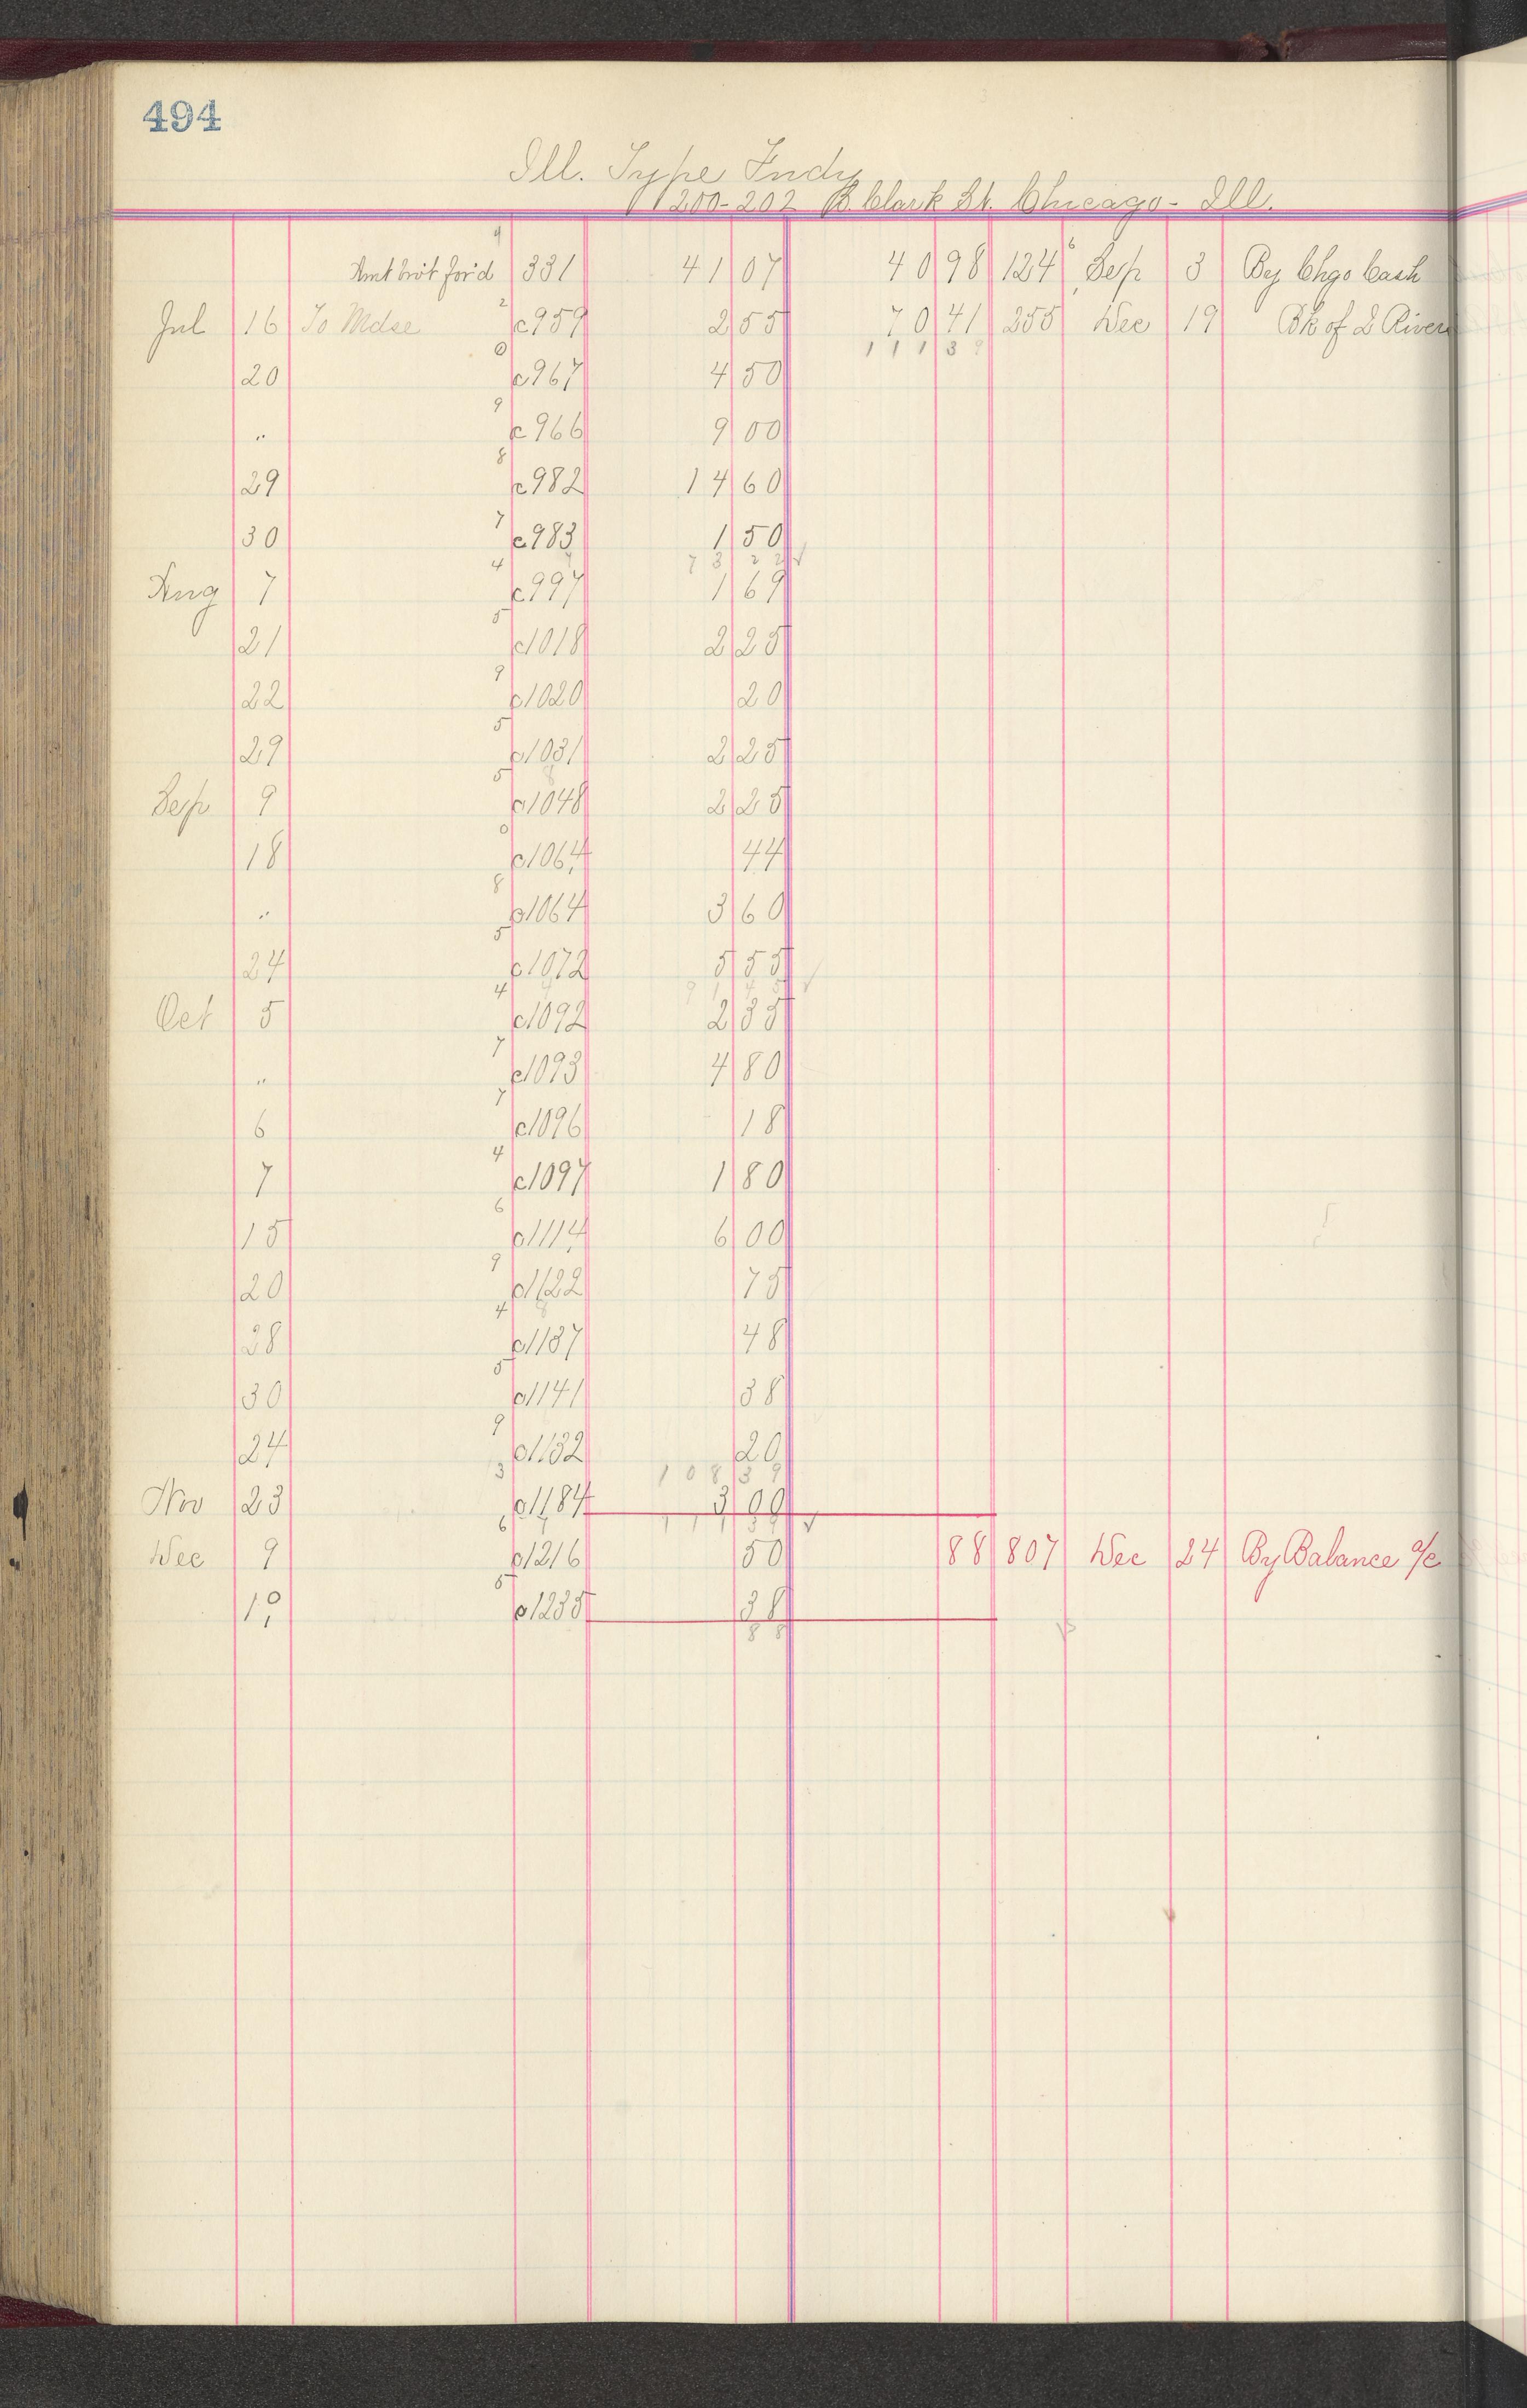 494
Ill. Type Fndy
200-202 S. Clark St. Chicago- Ill.
4
Amt bro't for'd 331 41 07 40 98 124 6 Sep 3 By Chgo Cash
Jul 16 To Mdse 2 c959 2 55 70 41 255 Dec 19 Bk of 2 Rivers
111 39
20 0 c967 4 50
" 9 c966 9 00
29 8 c982 14 60
30 7 c983 1 50
73 22 √
Aug 7 4 c997 1 69
21 5 c1018 2 25
22 9 c1020 20
29 5 c1031 2 25
8
Sep 9 5 c1048 2 25
18 0 c1064 44
" 8 c1064 3 60
24 5 c1072 5 55
91 45 √
Oct 5 4 c1092 2 35
" 7 c1093 4 80
6 7 c1096 18
7 4 c1097 1 80
15 6 c1114 6 00
20 9 c1122 75
8
28 4 c1137 48
30 5 c1141 38
24 9 c1132 20
108 39
Nov 23 3 c1184 3 00
111 39 √
Dec 9 6 c1216 50 88 807 Dec 24 By Balance a/c
19 5 c1235 38
88